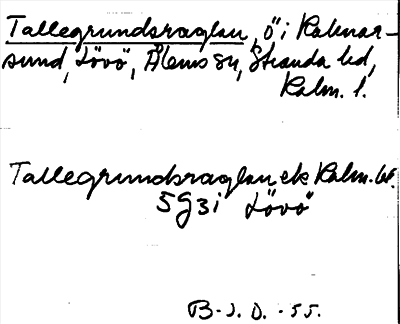 Tallegrundsraglan, ö i Kalmar-
sund, Lövö, Ålems sn, Stranda hd,
Kalm. l.
Tallegrundsraglan ek Kalm. bl.
5 g 3 i Lövö
B-J. D. -55.